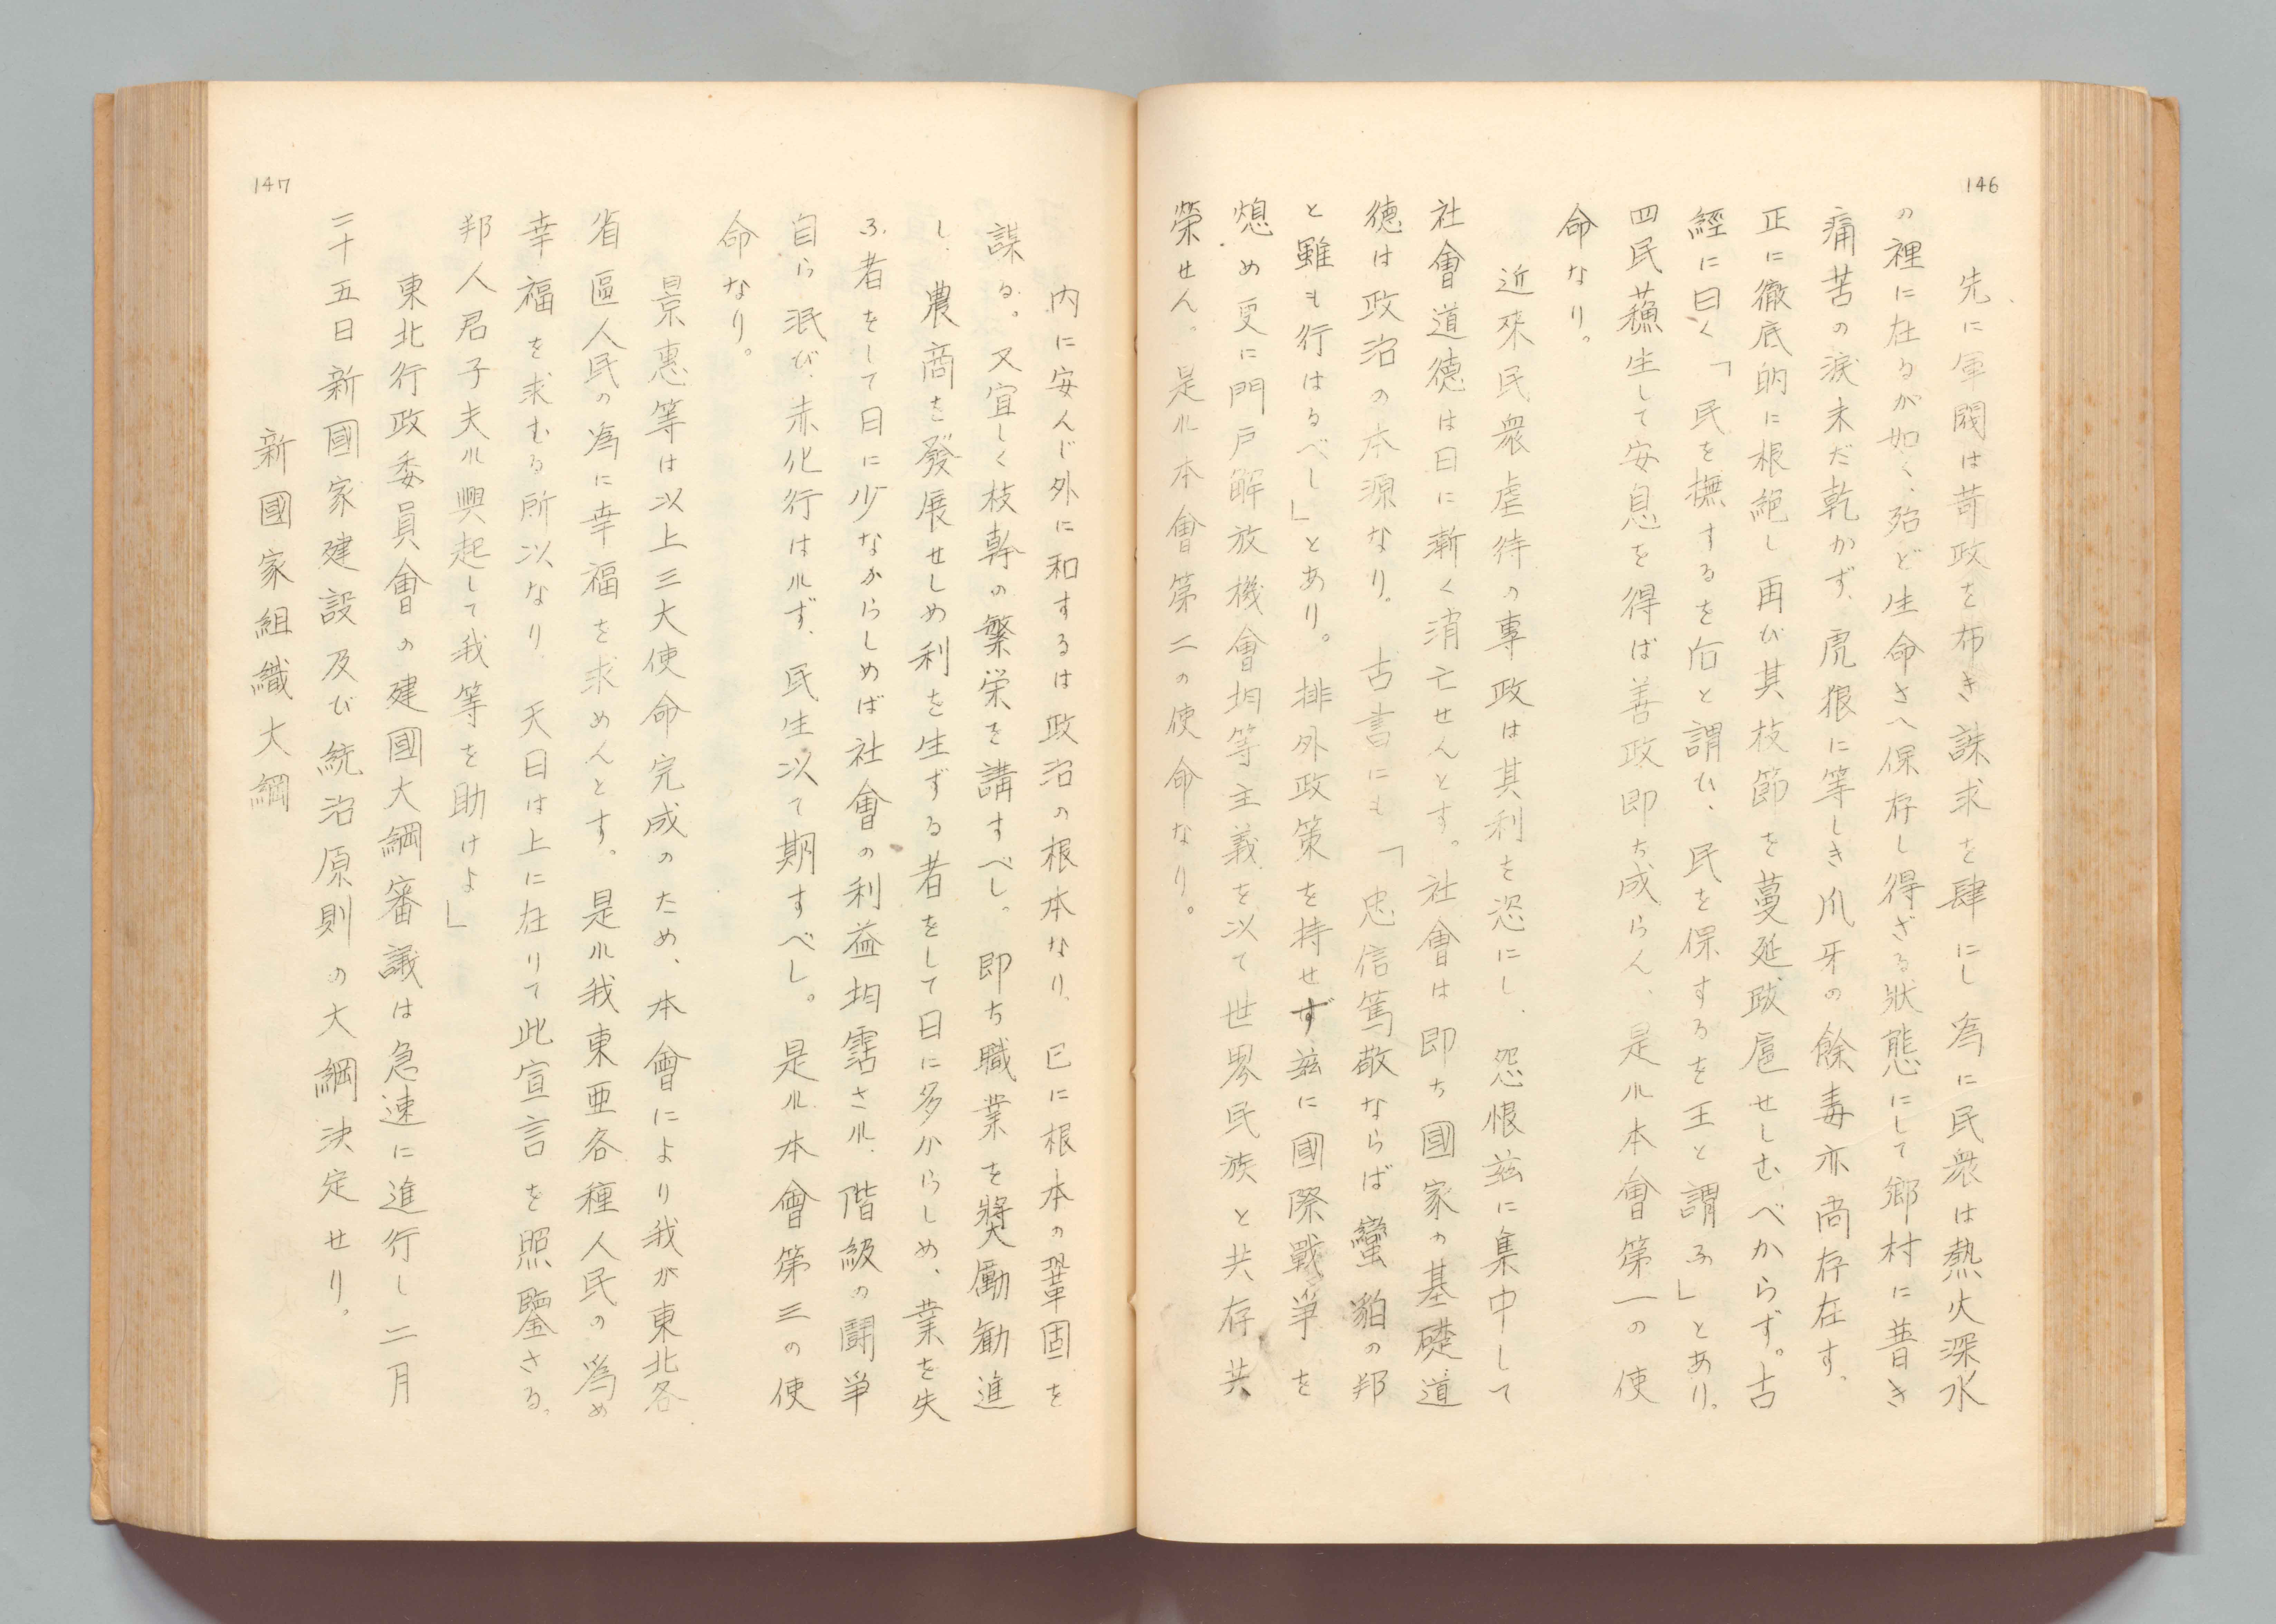 146
先に軍閥は苛政を布き誅求を肆にし為に民衆は熱火深水
の裡に在るが如く、殆ど生命さへ保存し得ざる狀態にして鄉村に普き
痛苦の淚未だ乾かず、虎狼に等しき爪牙の餘毒亦尚存在す、
正に徹底的に根絕し再び其枝節を蔓延跋扈せしむべからず。古
經に曰く「民を撫するを后と謂ひ、民を保するを王と謂ふ」とあり。
四民蘇生して安息を得ば善政即ち成らん、是れ本會第一の使
命なり。
近來民衆虐待の專政は其利を恣にし、怨恨茲に集中して
社會道德は日に漸く消亡せんとす。社會は即ち國家の基礎、道
德は政治の本源なり。古書にも「忠信篤敬ならば蠻貊の邦
と雖も行はるべし」とあり。排外政策を持せず、茲に國際戰爭を
熄め更に門戶解放機會均等主義を以て世界民族と共存共
榮せん。是れ本會第二の使命なり。
內に安んじ外に和するは政治の根本なり、已に根本の鞏固を
謀る。又宜しく枝幹の繁栄を講すべし。即ち職業を奬励勧進
し、農商を發展せしめ利を生ずる者をして日に多からしめ、業を失
ふ者をして日に少なからしめば社會の利益均霑され、階級の闘爭
自ら泯び、赤化行はれず、民生以て期すべし。是れ本會第三の使
命なり。
景惠等は以上三大使命完成のため、本會により我が東北各
省區人民の為に幸福を求めんとす。是れ我東亜各種人民の為め
幸福を求むる所以なり、天日は上に在りて此宣言を照鑒さる。
邦人君子夫れ興起して我等を助けよ」
東北行政委員會の建國大綱審議は急速に進行し二月
二十五日新國家建設及び統治原則の大綱決定せり。
新國家組織大綱
147